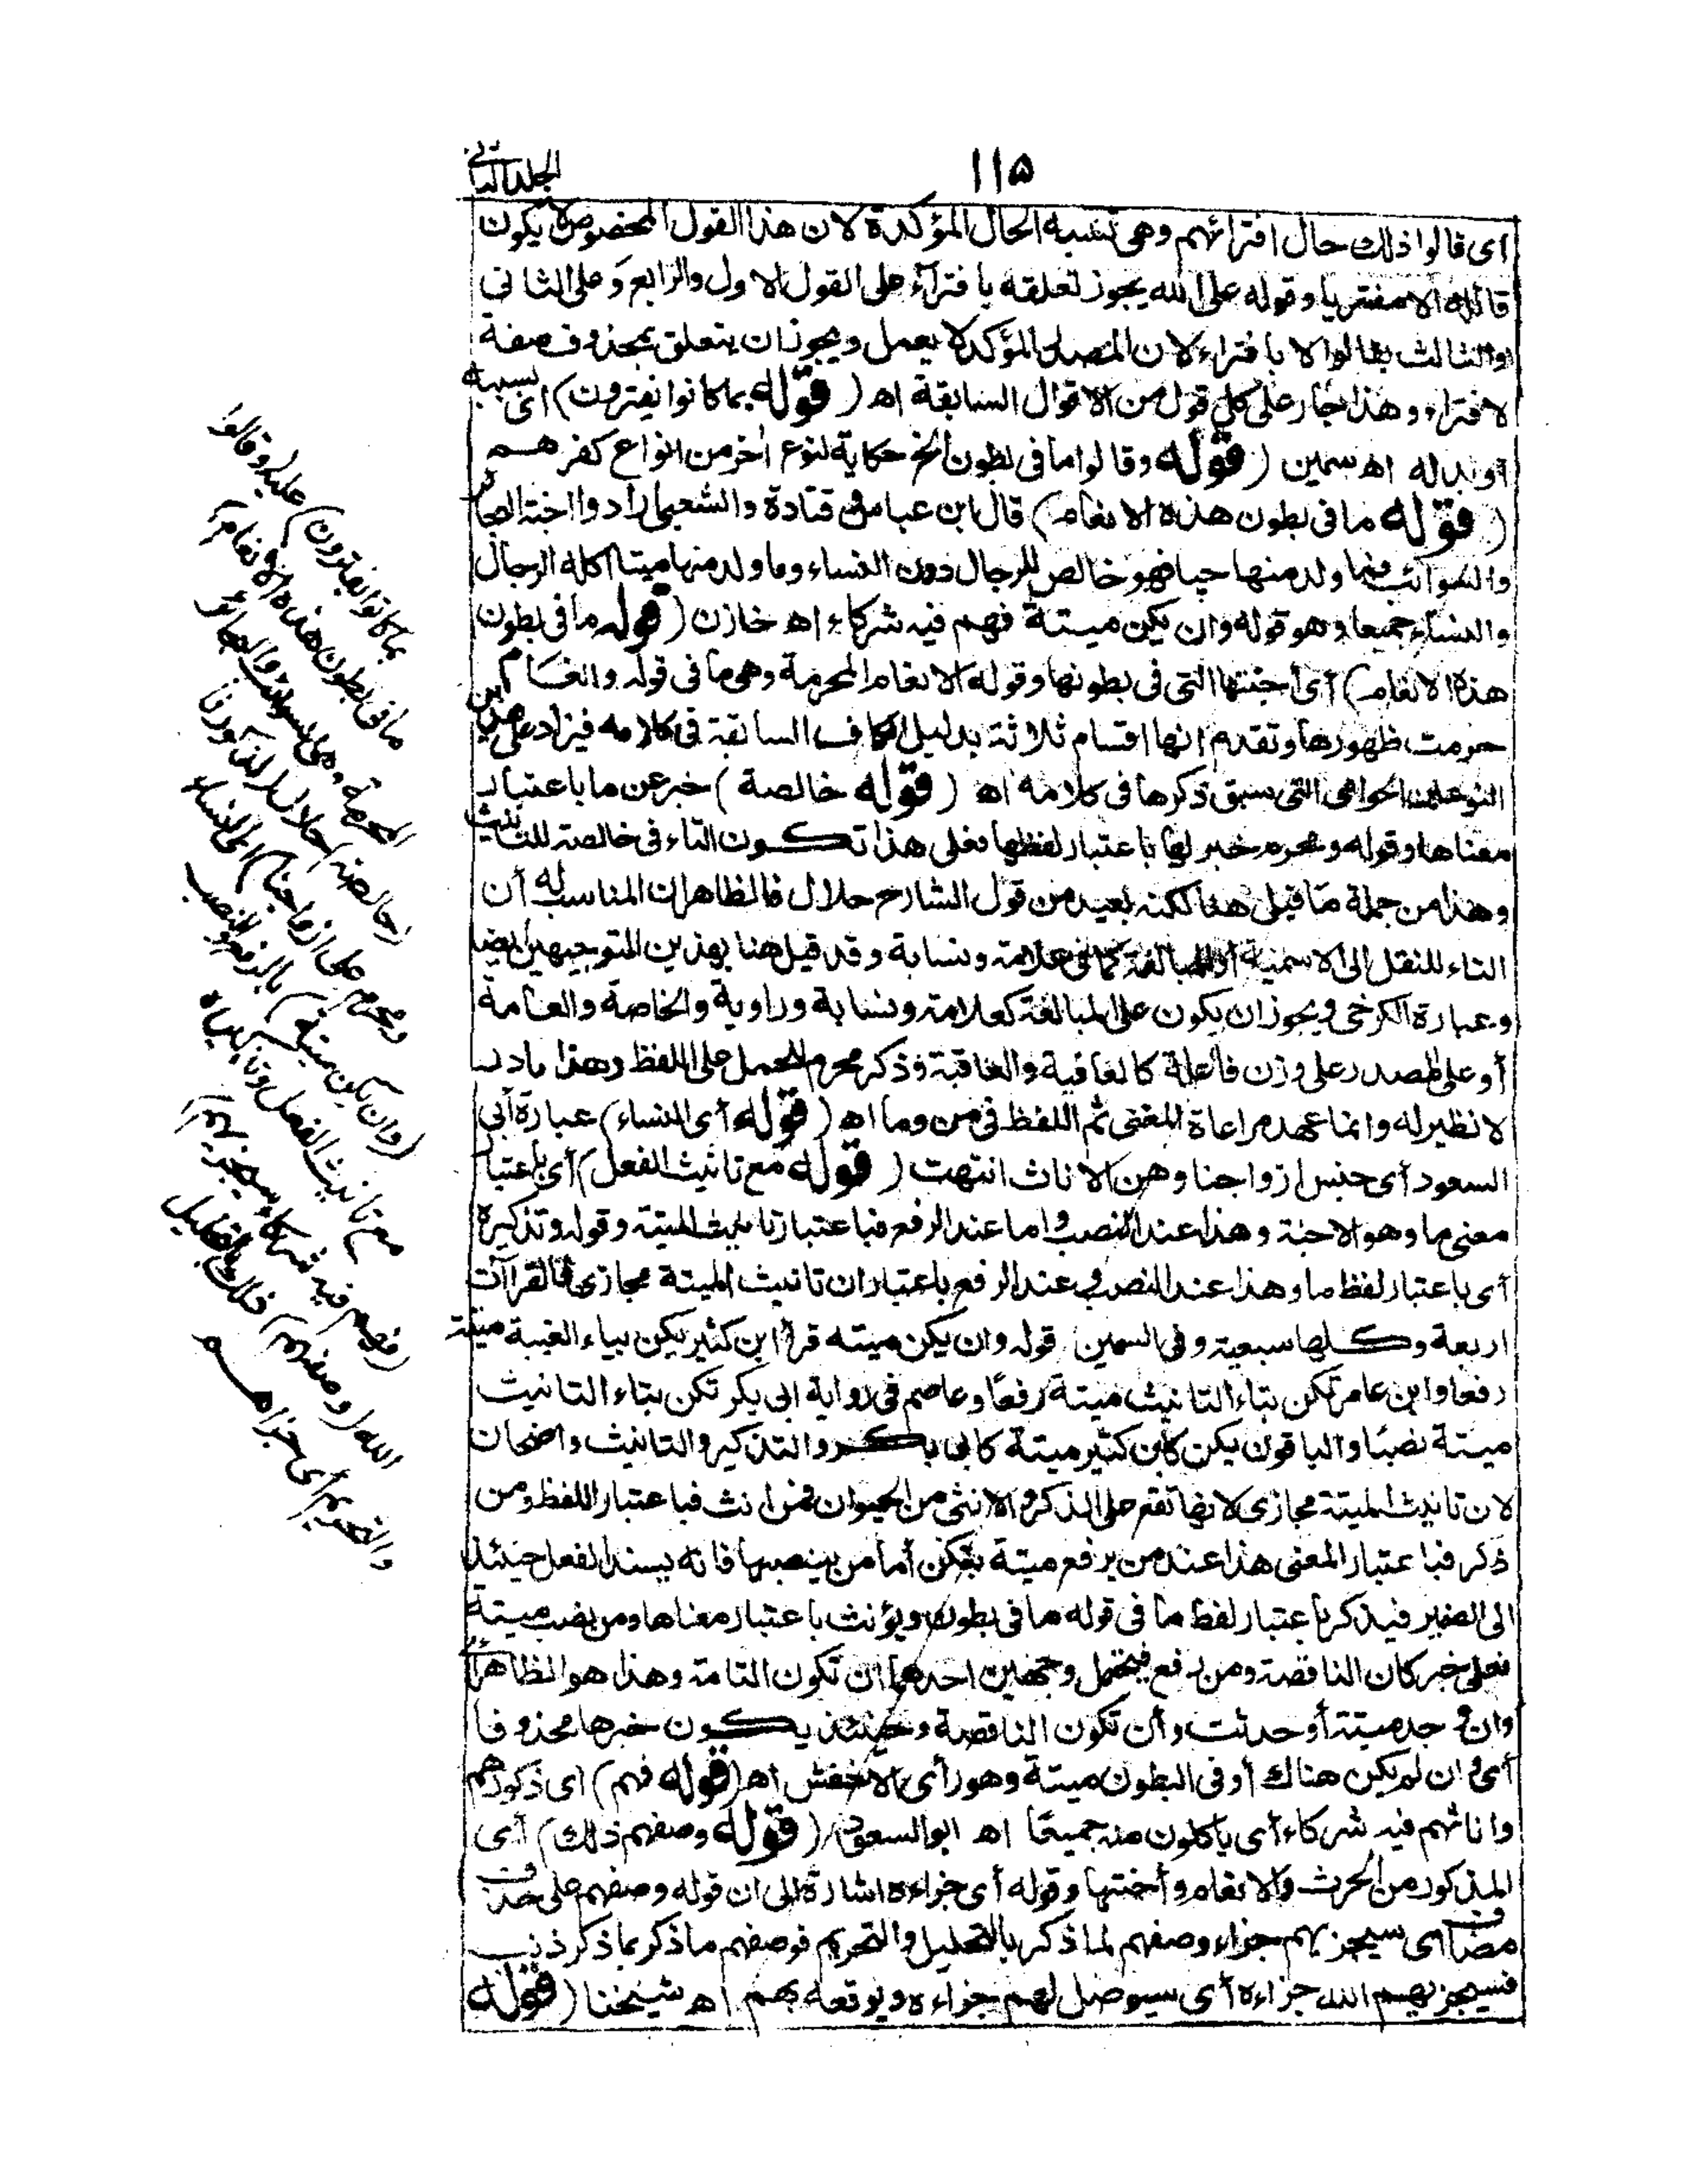 ١١٥
الجلد الثاني
أى قالوا ذلك حال افترائهم وهى تشبه الحال المؤكدة لان هذا القول المخصوص لا يكون
قائله الا مفتريا وقوله على الله يجوز تعلقه بافتراء على القول الاول والرابع وعلى الثانى
والثالث بقالوا لا بافتراء لان المصدر المؤكد لا يعمل ويجوز ان يتعلق بمحذوف صفة
لافتراء وهذا جار على كل قول من الاقوال السابقة اه (قوله بما كانوا يفترون) أى بسببه
أو بدله اه سمين (قوله وقالوا ما فى بطون الخ حكاية لنوع اخر من انواع كفرهم
(قوله ما فى بطون هذه الانعام) قال ابن عباس وقتادة والشعبى ارادوا اجنة البحائر
والسوائب فما ولد منها حيا فهو خالص للرجال دون النساء وما ولد منها ميتا اكله الرجال
والنساء جميعا وهو قوله وان يكن ميتة فهم فيه شركاء اه خازن (قوله ما فى بطون
هذه الانعام) أى أجنتها التى فى بطونها وقوله الانعام المحرمة وهى ما فى قوله وانعام
حرمت ظهورها وتقدم انها اقسام ثلاثة بدليل الكاف السابقة فى كلامه فيزاد على هذين
النوعين الحوامى التى سبق ذكرها فى كلامه اه (قوله خالصة) خبر عن ما باعتبار
معناها وقوله ومحرم خبر لها باعتبار لفظها فعلى هذا تكون التاء فى خالصة للتأنيث
وهذا من جملة ما قيل هنا لكنه بعيد من قول الشارح حلال فالظاهر ان المناسب له أن
التاء للنقل الى الاسمية أو للمبالغة كما فى علامة ونسابة وقد قيل هنا بهذين التوجيهين ايضا
وعبارة الكرخى ويجوز ان يكون على المبالغة كعلامة ونسابة وراوية والخاصة والعامة
أو على المصدر على وزن فاعلة كالعافية والعاقبة وذكر محرم للحمل على اللفظ وهذا نادر
لا نظير له وانما عهد مراعاة المعنى ثم اللفظ فى من وما اه (قوله أى النساء) عبارة أبى
السعود أى جنس ازواجنا وهن الاناث انتهت (قوله مع تأنيث الفعل) أى باعتبار
معنى ما وهو الاجنة وهذا عند النصب واما عند الرفع فباعتبار تانيث الميتة وقوله وتذكيره
أى باعتبار لفظ ما وهذا عند النصب وعند الرفع باعتبار ان تانيث الميتة مجازى فالقراآت
اربعة وكلها سبعية وفى السمين قوله وان يكن ميته قرأ ابن كثير يكن بياء الغيبة ميتة
رفعا وابن عامر تكن بتاء التانيث ميتة رفعا وعاصم فى رواية ابى بكر تكن بتاء التانيث
ميتة نصبا والباقون يكن كابن كثير ميتة كابى بكر والتذكير والتانيث واضحان
لان تانيث الميتة مجازى لانها تقع على الذكر والانثى من الحيوان فمن انث فباعتبار اللفظ ومن
ذكر فباعتبار المعنى هذا عند من يرفع ميتة بتكن أما من ينصبها فانه يسند الفعل حينئذ
الى الضمير فيذكر باعتبار لفظ ما فى قوله ما فى بطون ويؤنث باعتبار معناها ومن نصب ميتة
فعلى خبر كان الناقصة ومن رفع فيحتمل وجهين احدهما ان تكون التامة وهذا هو الظاهر أى
وان وجد ميتة أو حدثت وأن تكون الناقصة وحينئذ يكون خبرها محذوفا
أى وان لم يكن هناك أو فى البطون ميتة وهو رأى الاخفش اه (قوله فهم) اى ذكورهم
واناثهم فيه شركاء أى ياكلون منه جميعا اه ابو السعود (قوله وصفهم ذلك) أى
المذكور من الحرث والانعام وأجنتها وقوله أى جزاءه اشارة الى ان قوله وصفهم على حذف
مضاف أى سيجزيهم جزاء وصفهم لما ذكر بالتحليل والتحريم فوصفهم ما ذكر بما ذكر ذنب
فسيجزيهم الله جزاءه أى سيوصل لهم جزاءه ويوقعه بهم اه شيخنا (قوله
بما كانوا يفترون) عليه (وقالوا
ما فى بطون هذه الانعام)
المحرمة وهى السوائب والبحائر
(خالصة) حلال (لذكورنا
ومحرم على ازواجنا) أى النساء
(وان يكن ميتة) بالرفع والنصب
مع تانيث الفعل وتذكيره
(فهم فيه شركاء سيجزيهم)
الله (وصفهم) ذلك بالتحليل
والتحريم أى جزاءه